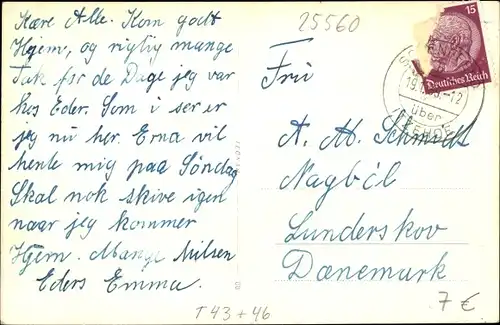 Kære Alle. Kom godt
Hjem, og rigtig mange
Tak for de Dage jeg var
hos Eder. Som i ser er
jeg nu her. Erna vil
hente mig paa Söndag
Skal nok skive igen
naar jeg kommer
Hjem. Mange Hilsen
Eders Emma.
25560
15
Deutsches Reich
über
Fru
A. M. Schmidt
Nagböl
Lunderskov
Danemark
T 43 + 46
7 €